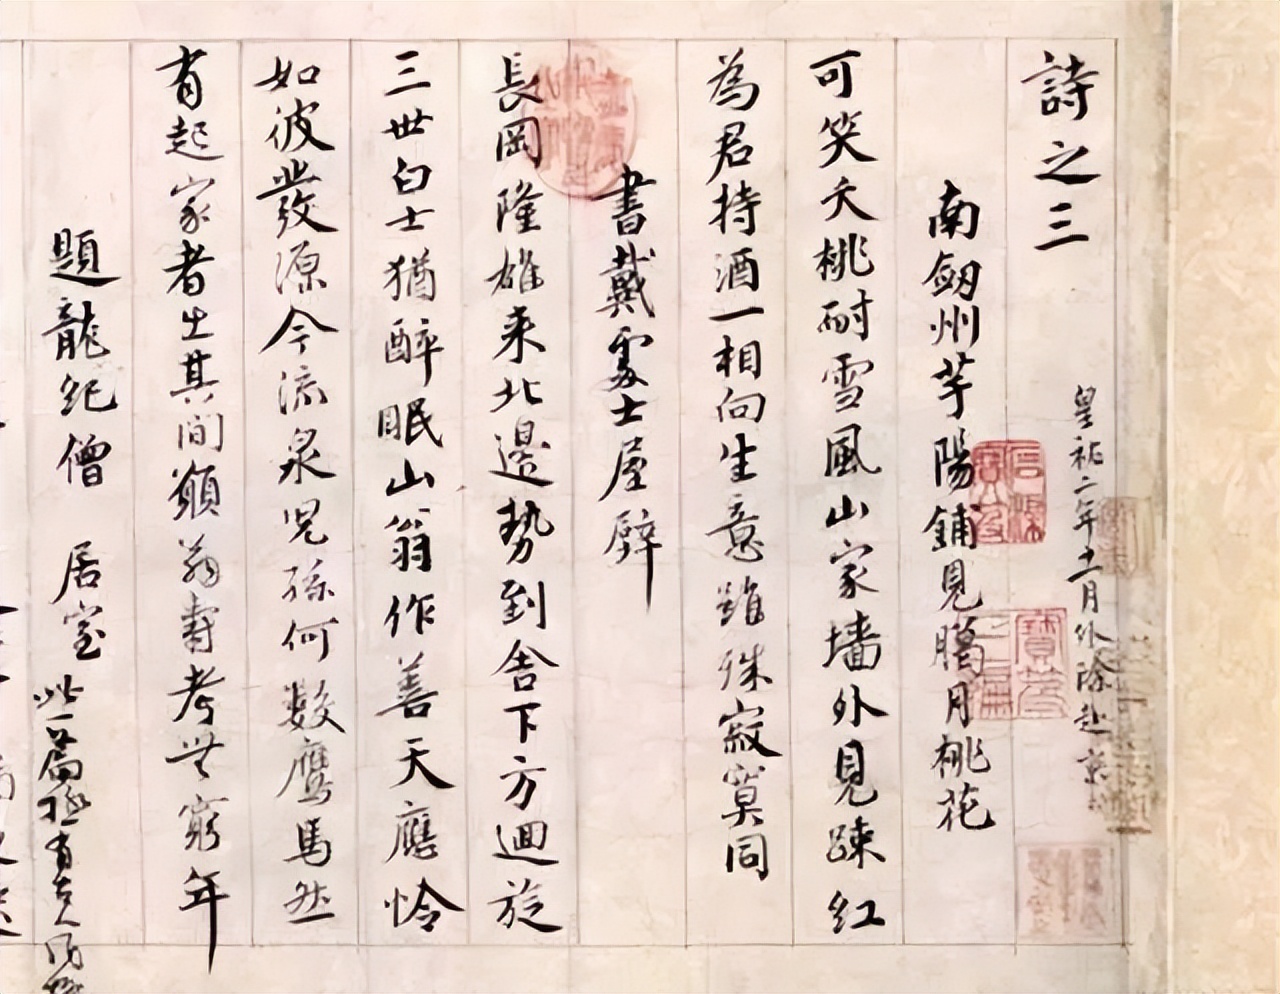 詩之三
皇祐二年十一月外除赴京
南劔州芋陽鋪見臘月桃花
可笑夭桃耐雪風山家墻外見踈紅
為君持酒一相向生意雖殊寂寞同
書戴處士屋壁
長岡隆雄來北邊勢到舍下方迴旋
三世白士猶醉眠山翁作善天應憐
如彼發源今流泉兒孫何數鴈馬然
有起家者出其間願翁壽考無窮年
題龍紀僧居室
此一篇極有古人風